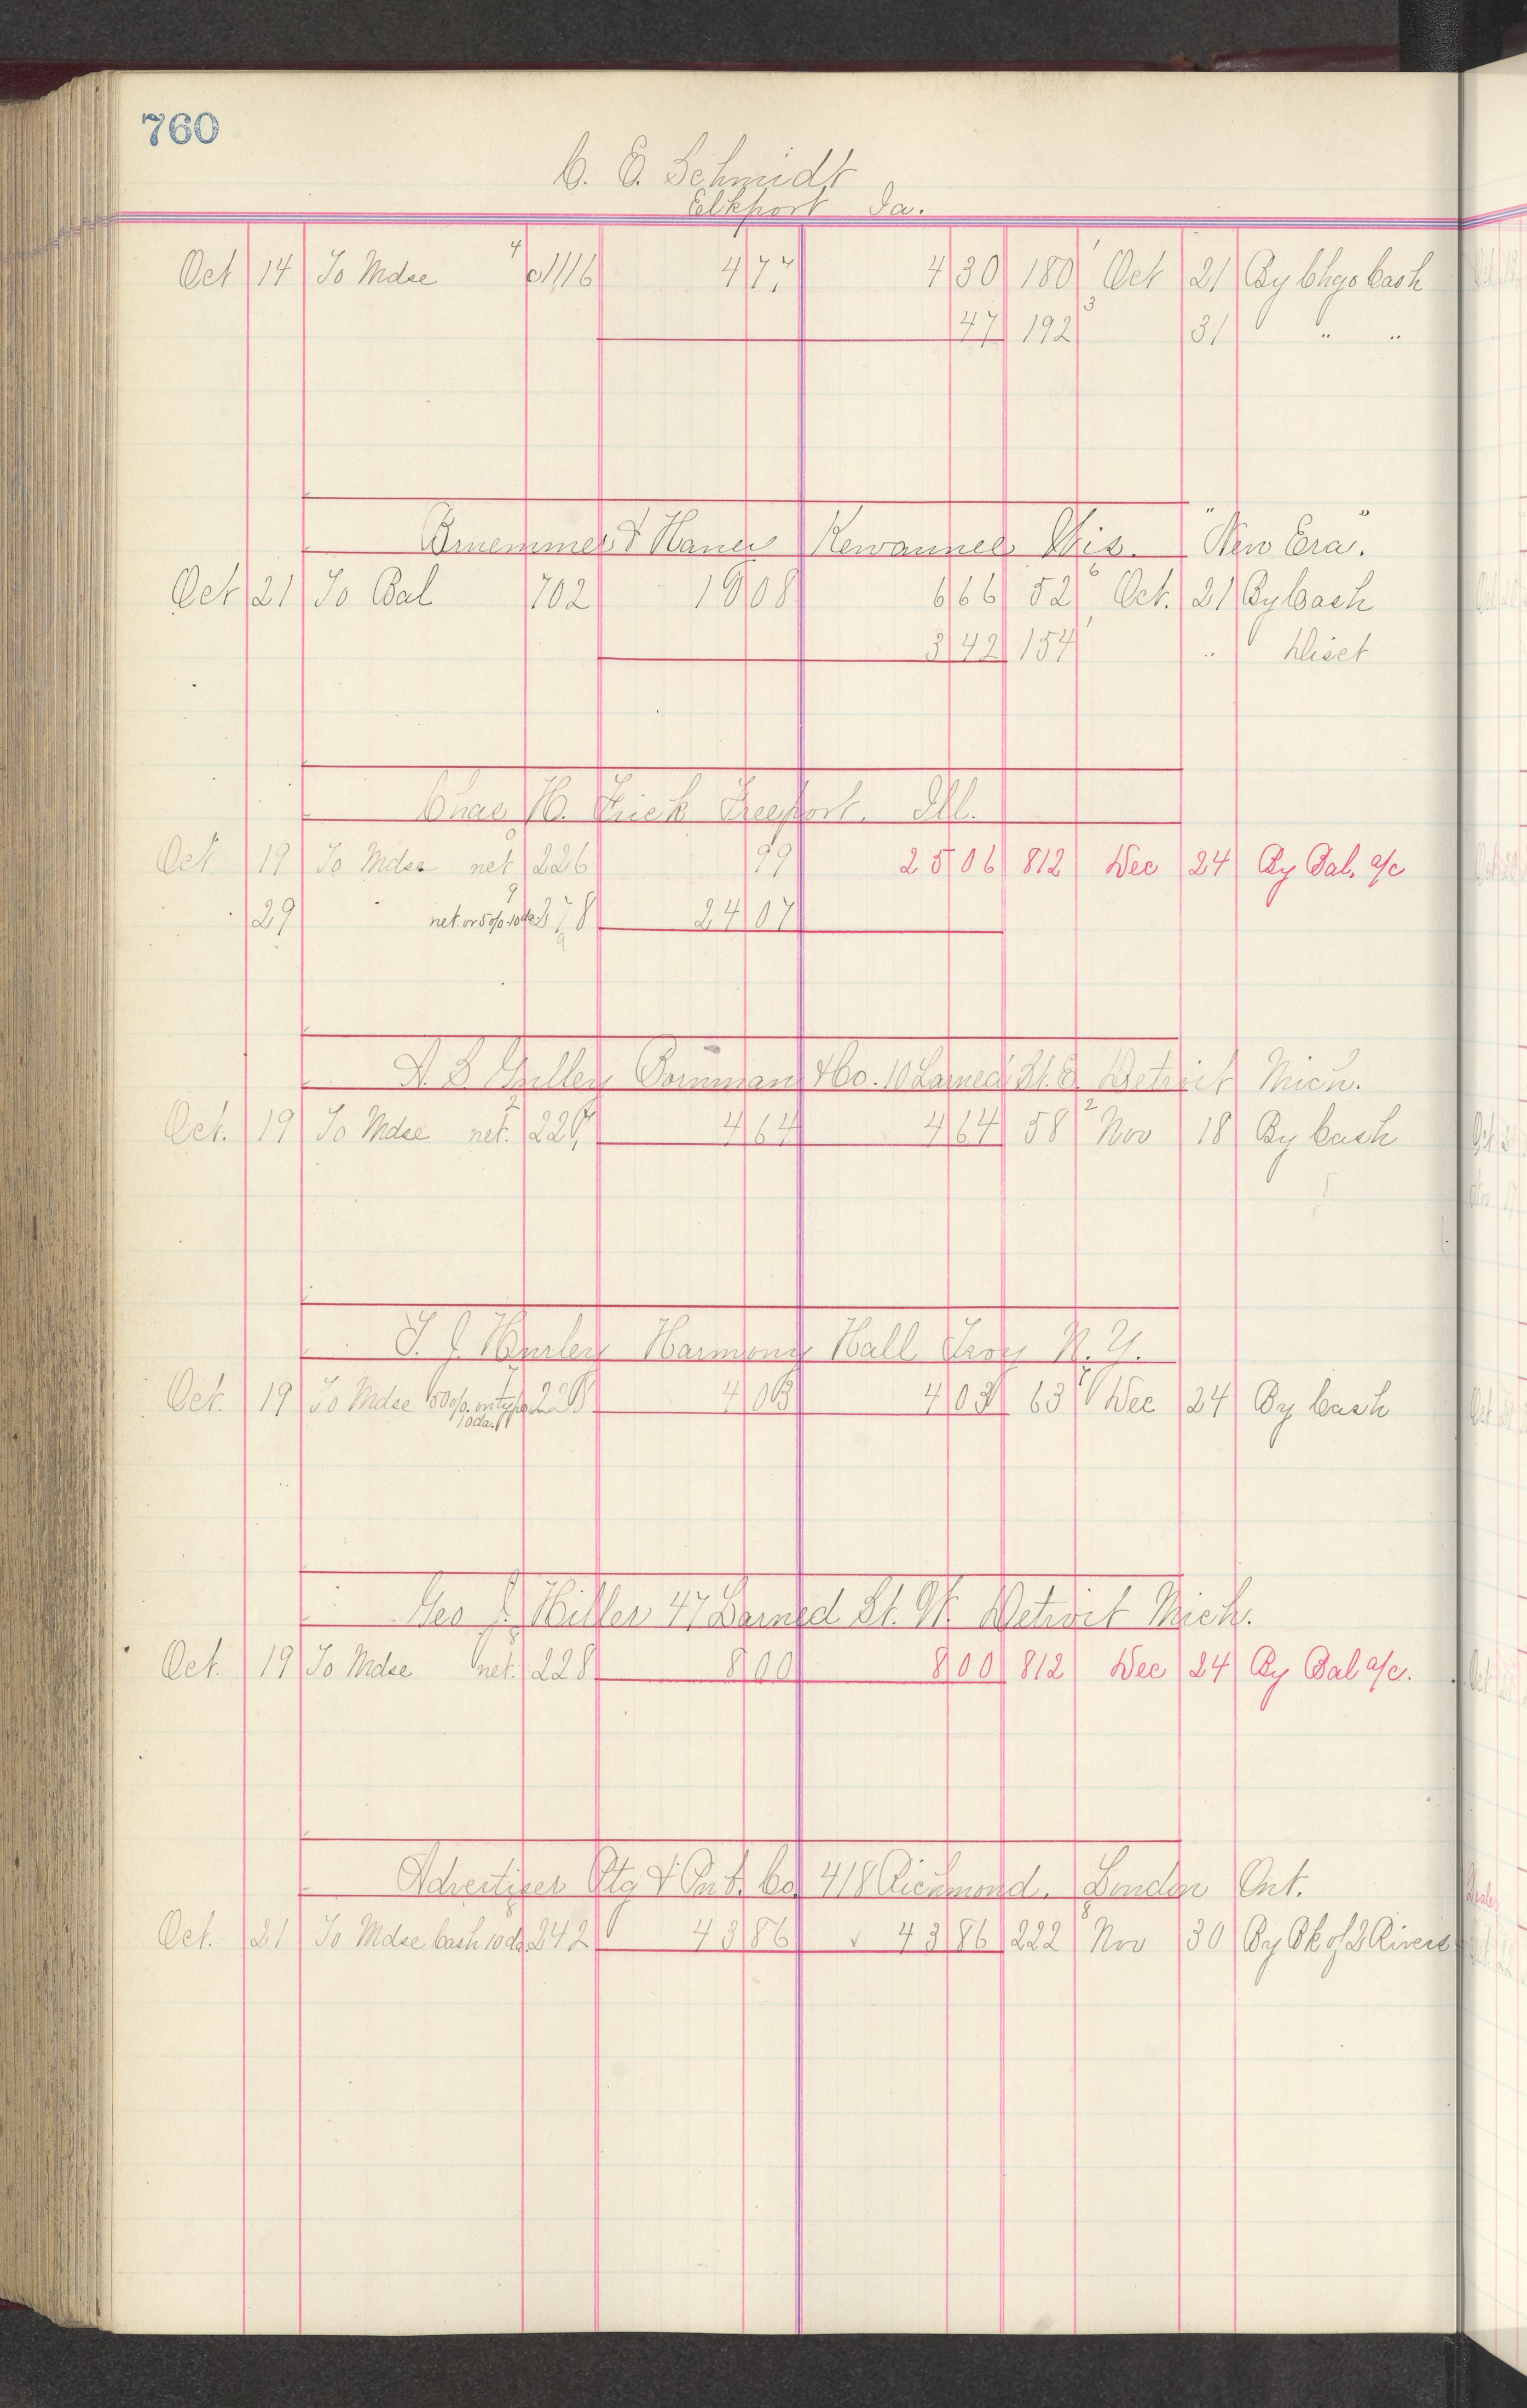 760
C. E. Schmidt
Elkport Ia.
Oct 14 To Mdse 4 c1116 4 77 4 30 180 1 Oct 21 By Chgo Cash
47 192 3 31 " "
Bruemmer & Haney Kewaunee Wis. "New Era".
Oct 21 To Bal 702 10 08 6 66 52 6 Oct. 21 By Cash
3 42 154 1 " Disct
Chas H. Frick Freeport. Ill.
Oct 19 To Mdse net 226 99 25 06 812 Dec 24 By Bal. a/c
29 " net or 5% 10da 9 378 24 07
& Co. 10 Larned St. E. Detroit Mich.
Oct. 19 To Mdse net. 227 4 64 4 64 58 2 Nov 18 By Cash
T. J. Hurley Harmony Hall Troy N. Y.
Oct. 19 To Mdse 228 4 03 4 03 63 Dec 24 By Cash
10da.
Geo J. Hiller 47 Larned St. W. Detroit Mich.
Oct. 19 To Mdse net. 228 8 00 8 00 812 Dec 24 By Bal a/c.
Advertiser Ptg & Pub. Co 418 Richmond. London Ont.
Oct. 21 To Mdse Cash 10 da 242 43 86 43 86 222 8 Nov 30 By Bk of 2 Rivers